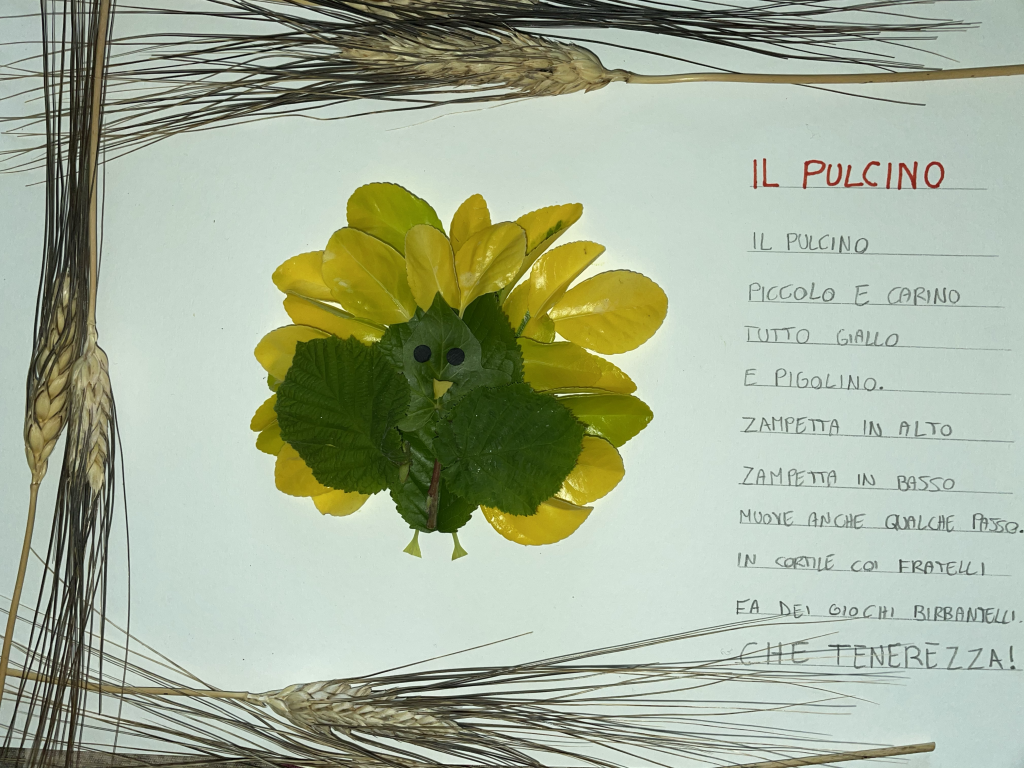 IL PULCINO
IL PULCINO
PICCOLO E CARINO
TUTTO GIALLO
E PIGOLINO.
ZAMPETTA IN ALTO
ZAMPETTA IN BASSO
MUOVE ANCHE QUALCHE PASSO.
IN CORTILE COI FRATELLI
FA DEI GIOCHI BIRBANTELLI.
CHE TENEREZZA!